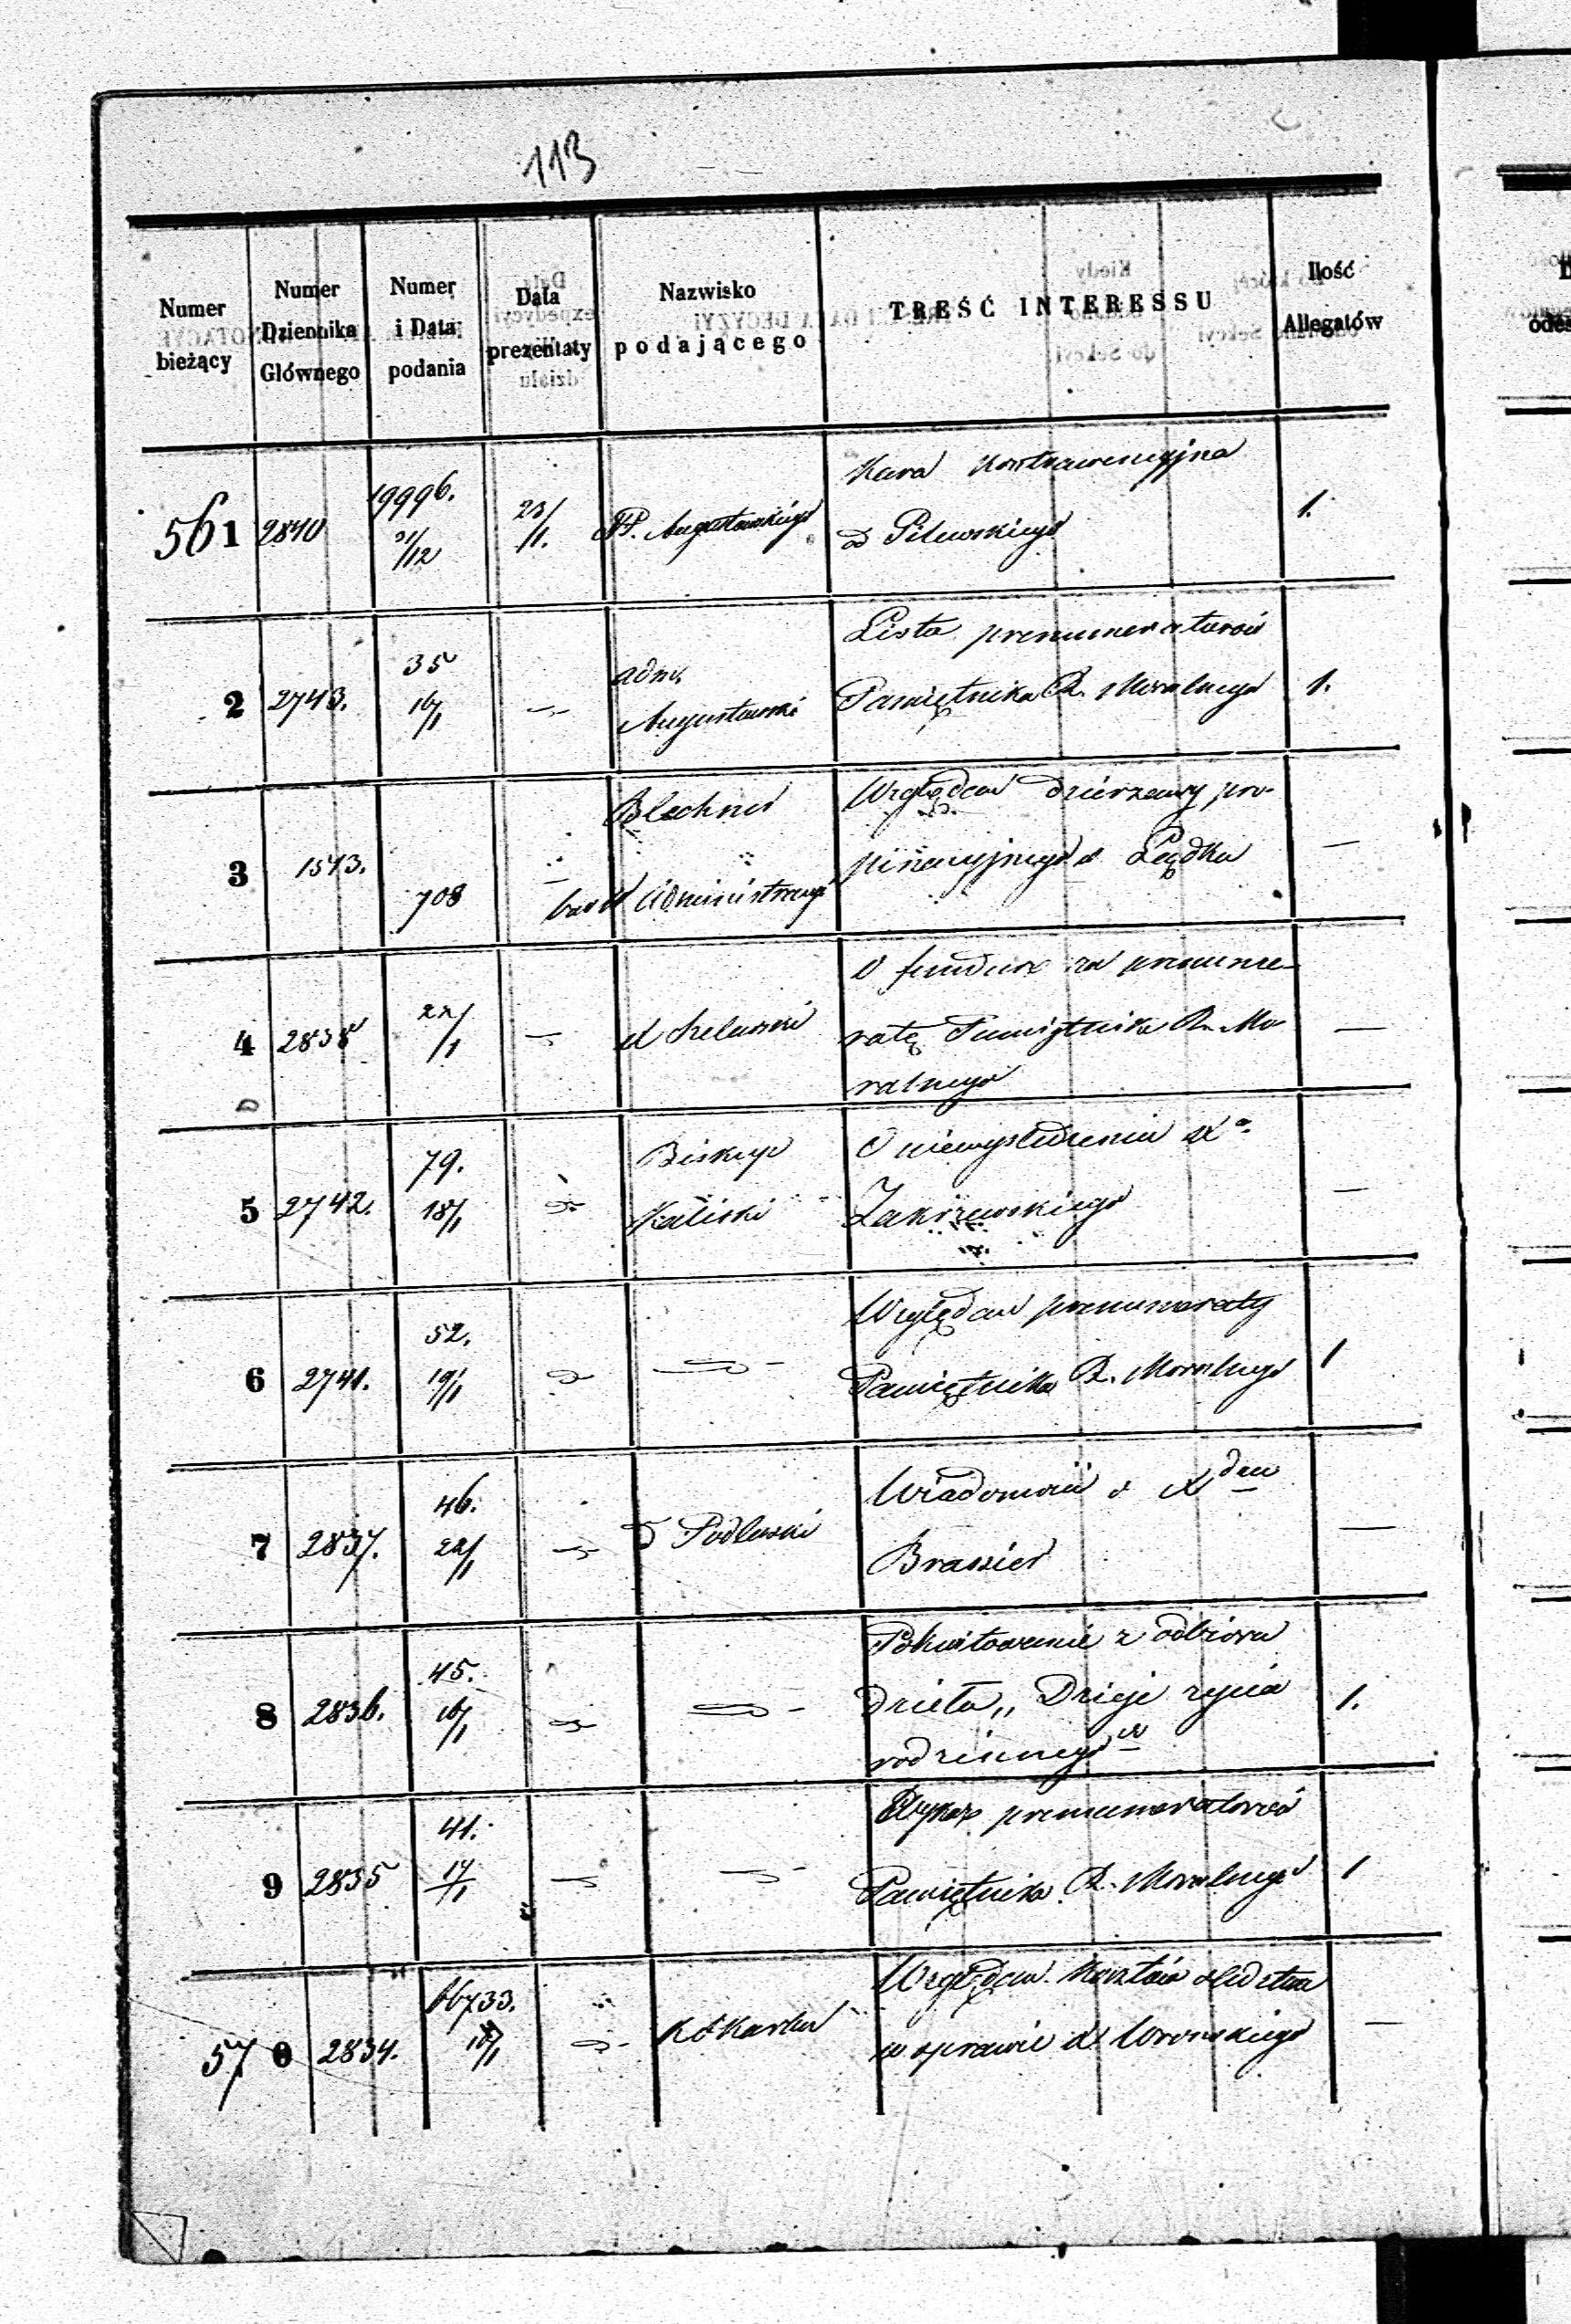 113
Numer bieżący
Numer Dziennika Głównego
Numer i Data podania
Data prezentaty
Nazwisko podającego
TREŚĆ INTERESSU
Ilość Allegatów
561 2840 19996. 31/12 23/1. Augustowskiego Kara Kontrawencyjna
od Pilewskiego 1.
2 2743. 35 16/1 adm. Augustowski Lista prenumeratorów
Pamiętnika R. Moralnego 1.
3 1543. 708 Blechner Administracyi Względem dzierżawy pro-
pinacyjnego Lądka —
4 2838 22/1 O fundusz za prenume-
ratę Pamiętnika R. Mo-
ralnego —
5 2742. 79. 18/1 Biskup Kaliski O niewyśledzeniu X
Zakrzewskiego —
6 2741. 52. 19/1 Względem prenumeraty
Pamiętnika R. Moralnego 1
7 2837. 46. 22/1 Podlaski Wiadomość o X
8 2836. 45. 16/1 Pokwitowanie z odbioru
dzieła „Dzieje życia
rodzinnego" 1.
9 2835 41. 17/1 Wykaz prenumeratorów
Pamiętnika R. Moralnego 1
570 2834. 66733. 18/1 Względem Kosztów śledztwa
w sprawie X Wronskiego —